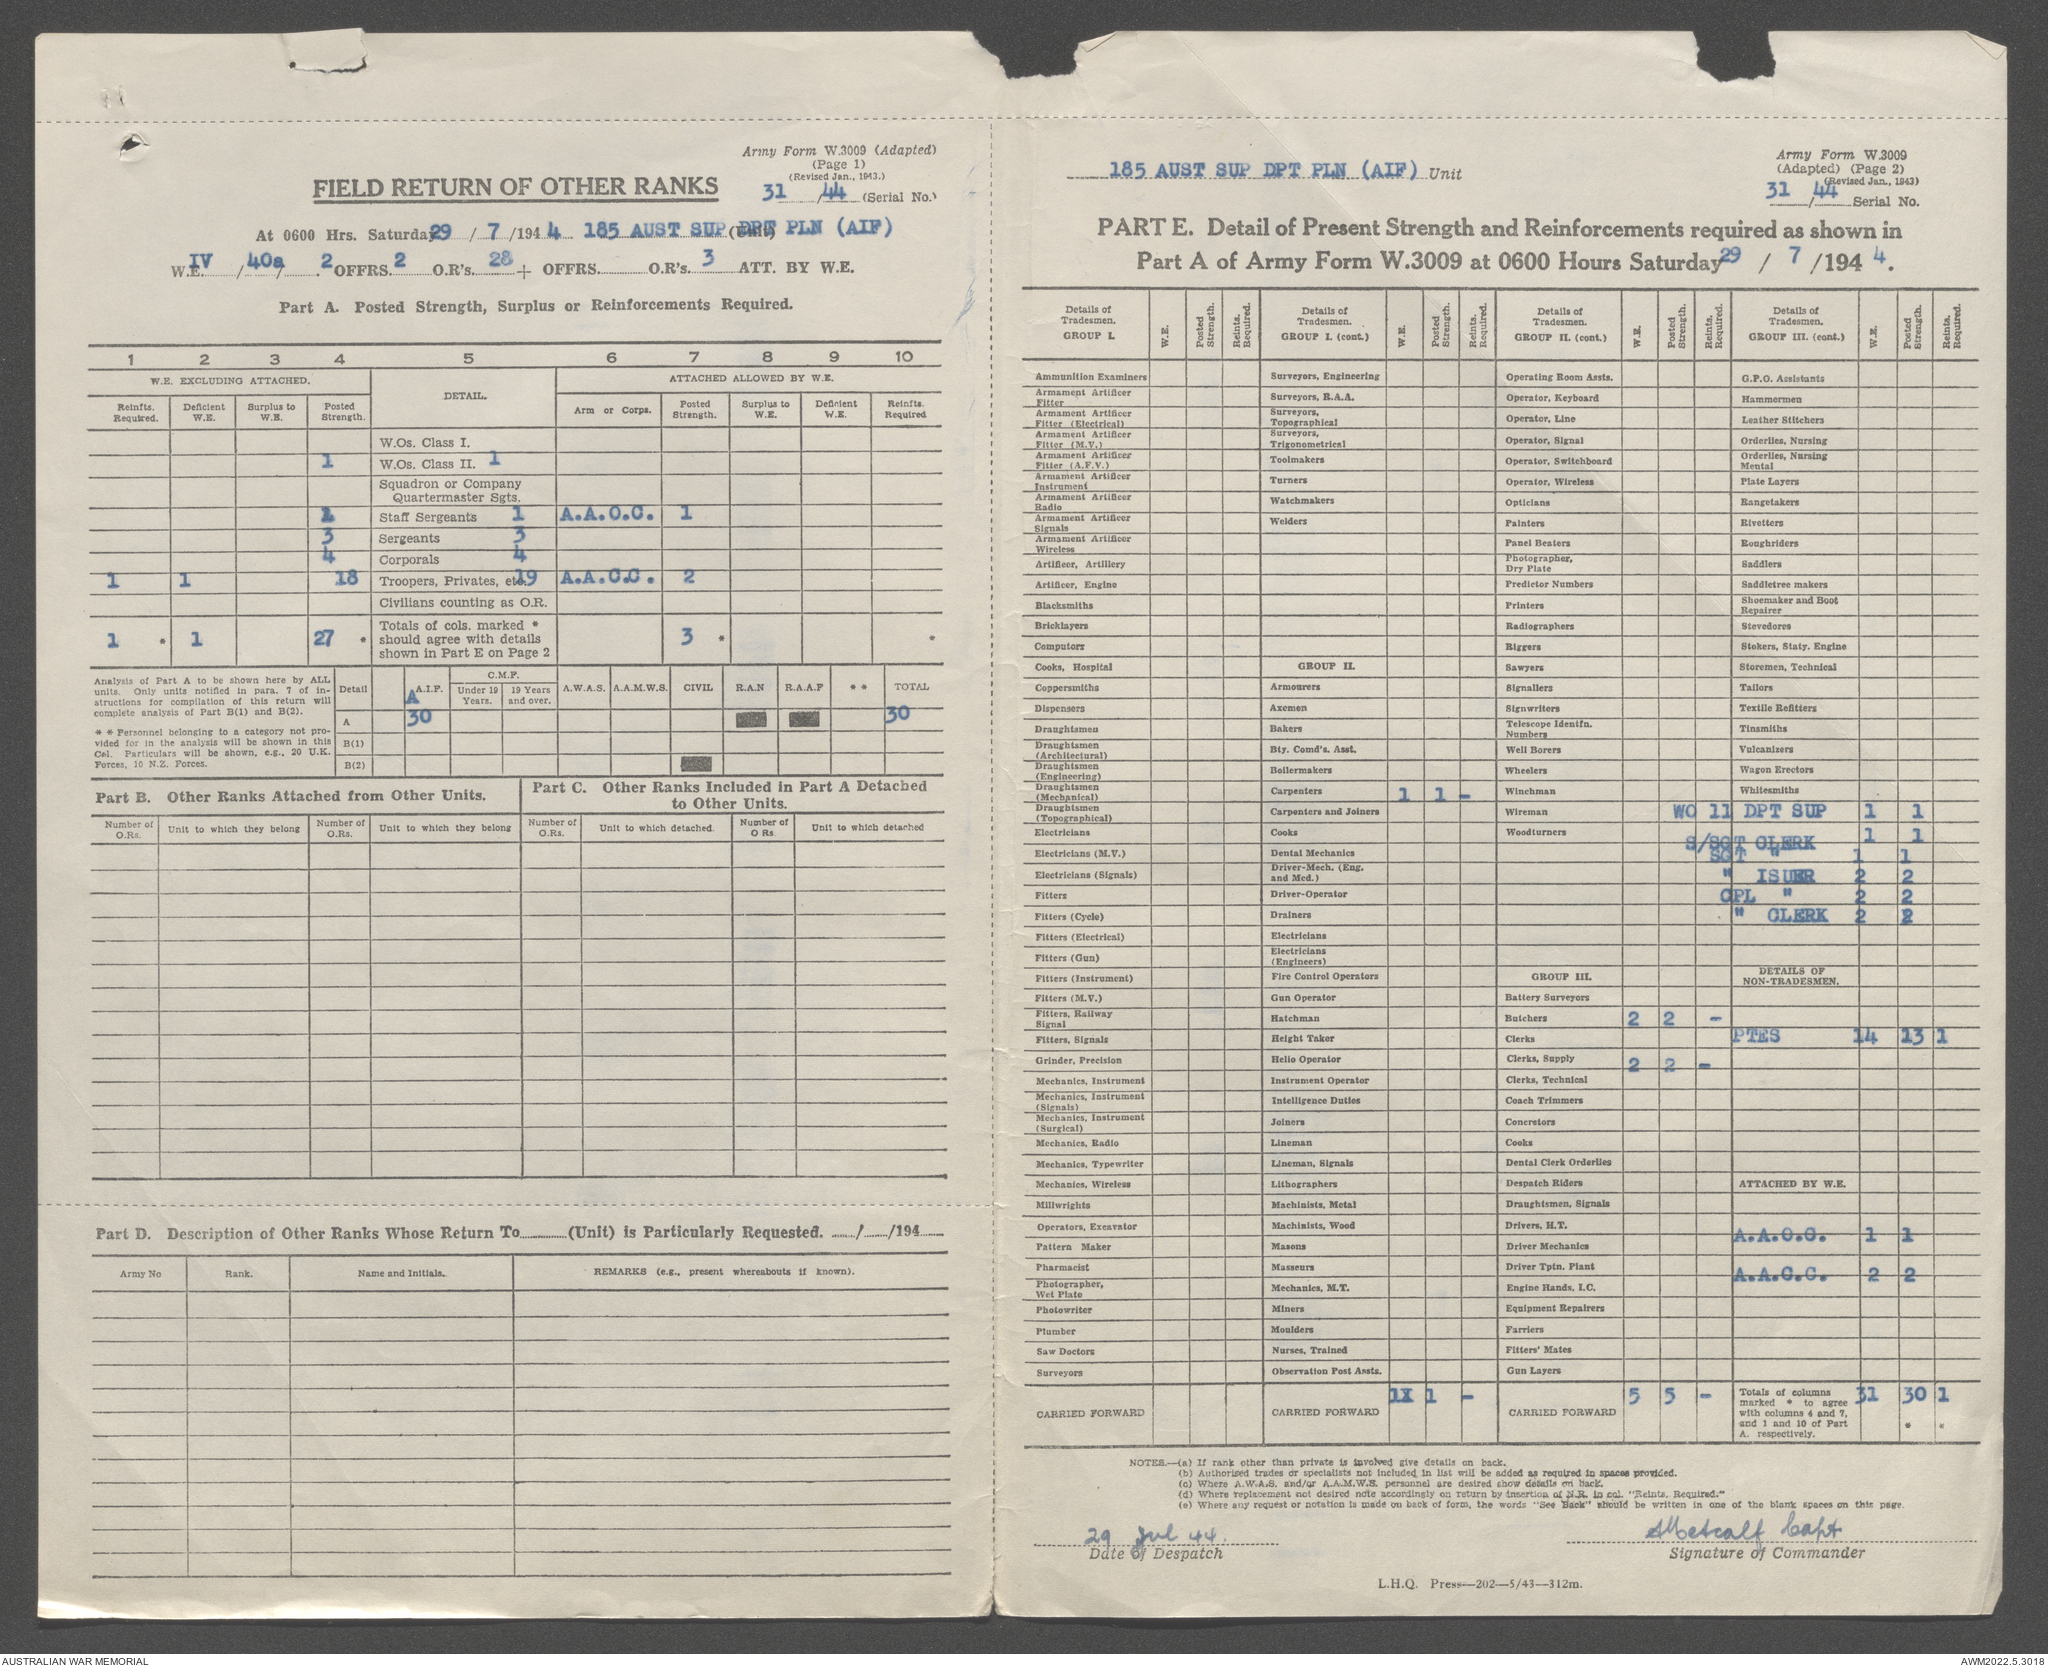 Army Form W.3009 (Adapted)
(Page 1)
(Revised Jan., 1943.)
FIELD RETURN OF OTHER RANKS
31/44 (Serial No.)
At 0600 Hrs. Saturday 29/7/1944 185 AUST SUP DPT PLN (AIF) (Unit)
W.E. IV/40a/2 OFFRS. 2 O.R's. 28 + OFFRS. O.R's. 3 ATT. BY W.E.
Part A. Posted Strength, Surplus or Reinforcements Required.
1 2 3 4 5 6 7 8 9 10
W.E. EXCLUDING ATTACHED. DETAIL. ATTACHED ALLOWED BY W.E.
Reinfts. Required. Deficient W.E. Surplus to W.E. Posted Strength. Arm or Corps. Posted Strength. Surplus to W.E. Deficient W.E. Reinfts. Required
W.Os. Class I.
1 W.Os. Class II. 1
Squadron or Company
Quartermaster Sgts.
Staff Sergeants 1 A.A.O.C. 1
3 Sergeants 3
4 Corporals 4
1 1 18 Troopers, Privates, etc. 19 A.A.C.C. 2
Civilians counting as O.R.
1 * 1 27 * Totals of cols. marked * should agree with details shown in Part E on Page 2 3 * *
Analysis of Part A to be shown here by ALL units. Only units notified in para. 7 of instructions for compilation of this return will complete analysis of Part B(1) and B(2).
* * Personnel belonging to a category not provided for in the analysis will be shown in this Col. Particulars will be shown, e.g., 20 U.K. Forces, 10 N.Z. Forces.
Detail A.I.F. C.M.F. Under 19 Years. 19 Years and over. A.W.A.S. A.A.M.W.S. CIVIL R.A.N R.A.A.F * * TOTAL
A
A 30 30
B(1)
B(2)
Part B. Other Ranks Attached from Other Units.
Part C. Other Ranks Included in Part A Detached to Other Units.
Number of O.Rs. Unit to which they belong Number of O.Rs. Unit to which they belong Number of O.Rs. Unit to which detached. Number of O Rs Unit to which detached
Part D. Description of Other Ranks Whose Return To (Unit) is Particularly Requested. / /194
Army No Rank. Name and Initials. REMARKS (e.g., present whereabouts if known).
185 AUST SUP DPT PLN (AIF) Unit
Army Form W.3009
(Adapted) (Page 2)
(Revised Jan., 1943)
31/44 Serial No.
PART E. Detail of Present Strength and Reinforcements required as shown in
Part A of Army Form W.3009 at 0600 Hours Saturday 29/7/1944.
Details of Tradesmen. GROUP I. W.E. Posted Strength. Reints. Required.
Ammunition Examiners
Armament Artificer Fitter
Armament Artificer Fitter (Electrical)
Armament Artificer Fitter (M.V.)
Armament Artificer Fitter (A.F.V.)
Armament Artificer Instrument
Armament Artificer Radio
Armament Artificer Signals
Armament Artificer Wireless
Artificer, Artillery
Artificer, Engine
Blacksmiths
Bricklayers
Computors
Cooks, Hospital
Coppersmiths
Dispensers
Draughtsmen
Draughtsmen (Architectural)
Draughtsmen (Engineering)
Draughtsmen (Mechanical)
Draughtsmen (Topographical)
Electricians
Electricians (M.V.)
Electricians (Signals)
Fitters
Fitters (Cycle)
Fitters (Electrical)
Fitters (Gun)
Fitters (Instrument)
Fitters (M.V.)
Fitters, Railway Signal
Fitters, Signals
Grinder, Precision
Mechanics, Instrument
Mechanics, Instrument (Signals)
Mechanics, Instrument (Surgical)
Mechanics, Radio
Mechanics, Typewriter
Mechanics, Wireless
Millwrights
Operators, Excavator
Pattern Maker
Pharmacist
Photographer, Wet Plate
Photowriter
Plumber
Saw Doctors
Surveyors
CARRIED FORWARD
Details of Tradesmen. GROUP I. (cont.) W.E. Posted Strength. Reints. Required.
Surveyors, Engineering
Surveyors, R.A.A.
Surveyors, Topographical
Surveyors, Trigonometrical
Toolmakers
Turners
Watchmakers
Welders
GROUP II.
Armourers
Axemen
Bakers
Bty. Comd's. Asst.
Boilermakers
Carpenters 1 1 -
Carpenters and Joiners
Cooks
Dental Mechanics
Driver-Mech. (Eng. and Med.)
Driver-Operator
Drainers
Electricians
Electricians (Engineers)
Fire Control Operators
Gun Operator
Hatchman
Height Taker
Helio Operator
Instrument Operator
Intelligence Duties
Joiners
Lineman
Lineman, Signals
Lithographers
Machinists, Metal
Machinists, Wood
Masons
Masseurs
Mechanics, M.T.
Miners
Moulders
Nurses, Trained
Observation Post Assts.
CARRIED FORWARD 1X 1 -
Details of Tradesmen. GROUP II. (cont.) W.E. Posted Strength. Reints. Required.
Operating Room Assts.
Operator, Keyboard
Operator, Line
Operator, Signal
Operator, Switchboard
Operator, Wireless
Opticians
Painters
Panel Beaters
Photographer, Dry Plate
Predictor Numbers
Printers
Radiographers
Riggers
Sawyers
Signallers
Signwriters
Telescope Identfn. Numbers
Well Borers
Wheelers
Winchman
Wireman
Woodturners
GROUP III.
Battery Surveyors
Butchers 2 2 -
Clerks
Clerks, Supply 2 2 -
Clerks, Technical
Coach Trimmers
Concretors
Cooks
Dental Clerk Orderlies
Despatch Riders
Draughtsmen, Signals
Drivers, H.T.
Driver Mechanics
Driver Tptn. Plant
Engine Hands, I.C.
Equipment Repairers
Farriers
Fitters' Mates
Gun Layers
CARRIED FORWARD 5 5 -
Details of Tradesmen. GROUP III. (cont.) W.E. Posted Strength. Reints. Required.
G.P.O. Assistants
Hammermen
Leather Stitchers
Orderlies, Nursing
Orderlies, Nursing Mental
Plate Layers
Rangetakers
Rivetters
Roughriders
Saddlers
Saddletree makers
Shoemaker and Boot Repairer
Stevedores
Stokers, Staty. Engine
Storemen, Technical
Tailors
Textile Refitters
Tinsmiths
Vulcanizers
Wagon Erectors
Whitesmiths
WO 11 DPT SUP 1 1
S/SGT CLERK 1 1
SGT " 1 1
" ISUER 2 2
CPL " 2 2
" CLERK 2 2
DETAILS OF NON-TRADESMEN.
PTES 14 13 1
ATTACHED BY W.E.
A.A.O.C. 1 1
A.A.C.C. 2 2
Totals of columns marked * to agree with columns 4 and 7, and 1 and 10 of Part A. respectively. 31 30 * 1 *
NOTES.—(a) If rank other than private is involved give details on back.
(b) Authorised trades or specialists not included in list will be added as required in spaces provided.
(c) Where A.W.A.S. and/or A.A.M.W.S. personnel are desired show details on back.
(d) Where replacement not desired note accordingly on return by insertion of N.R. in col. "Reints. Required."
(e) Where any request or notation is made on back of form, the words "See Back" should be written in one of the blank spaces on this page.
29 Jul 44.
Date of Despatch
Metcalf Capt
Signature of Commander
L.H.Q. Press—202—5/43—312m.
AUSTRALIAN WAR MEMORIAL
AWM2022.5.3018